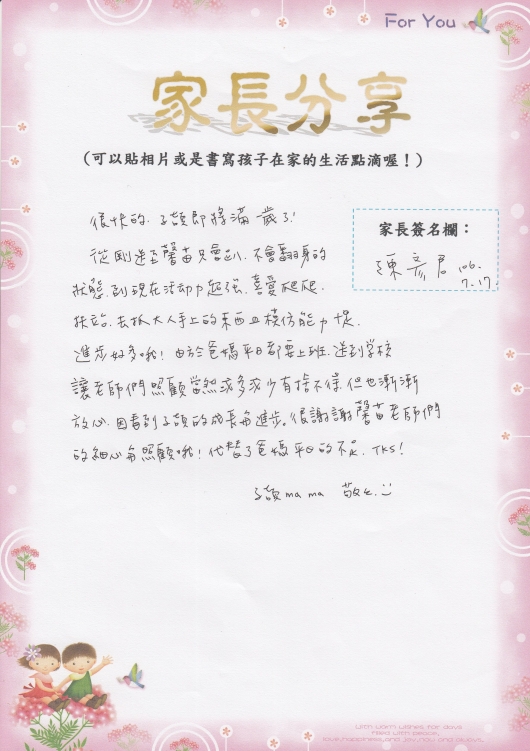 For You
家長分享
(可以貼相片或是書寫孩子在家的生活點滴喔!)
很快的,子頡即將滿歲了!
家長簽名欄:
陳彥君 106.
7.17.
從剛送至馨苗只會趴,不會翻身的
狀態,到現在活動力超強,喜愛爬爬,
扶站,去抓大人手上的東西且模仿能力快,
進步好多哦!由於爸媽平日都要上班,送到學校
讓老師們照顧當然或多或少有捨不得,但也漸漸
放心,因看到子頡的成長與進步。很謝謝馨苗老師們
的細心與照顧哦!代替了爸媽平日的不足,TKS!
子頡mama 敬上.
with warm wishes for days
filled with peace,
love,happiness,and joy,now and always.